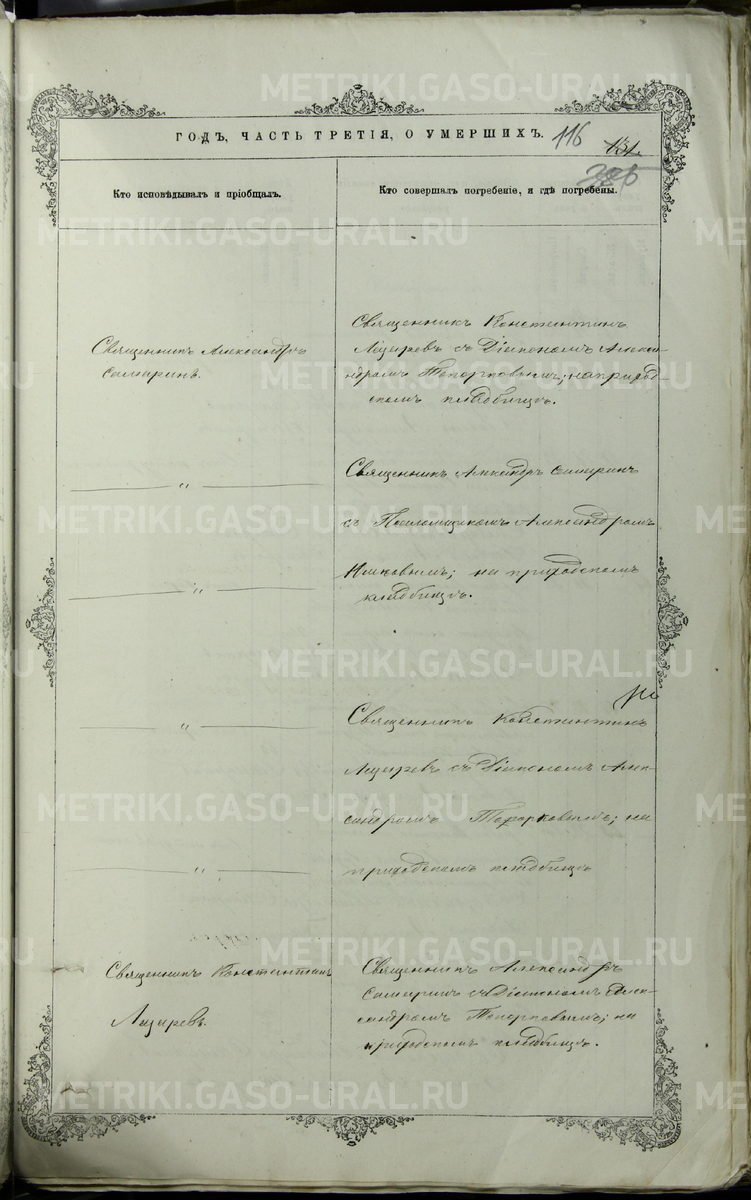 ГОДЪ, ЧАСТЬ ТРЕТІЯ, О УМЕРШИХЪ.
116
131
Кто исповѣдывалъ и пріобщалъ.
Кто совершалъ погребеніе, и гдѣ погребены.
Священникъ Александръ
Самаринъ.
Священникъ Константинъ
Лазаревъ съ Діакономъ Алекса-
ндромъ Топорковымъ; на приход-
скомъ кладбищѣ.
Священникъ Александръ Самаринъ
— " —
съ Псаломщикомъ Александромъ
на приходскомъ
— " —
кладбищѣ.
Священникъ Константинъ
— " —
Лазаревъ съ Діакономъ Алек-
сандромъ Топорковымъ; на
приходскомъ кладбищѣ
— " —
Священникъ Константинъ
Лазаревъ.
Священникъ Александръ
Самаринъ съ Діакономъ Алек-
сандромъ Топорковымъ; на
приходскомъ кладбищѣ.
METRIKI.GASO-URAL.RU